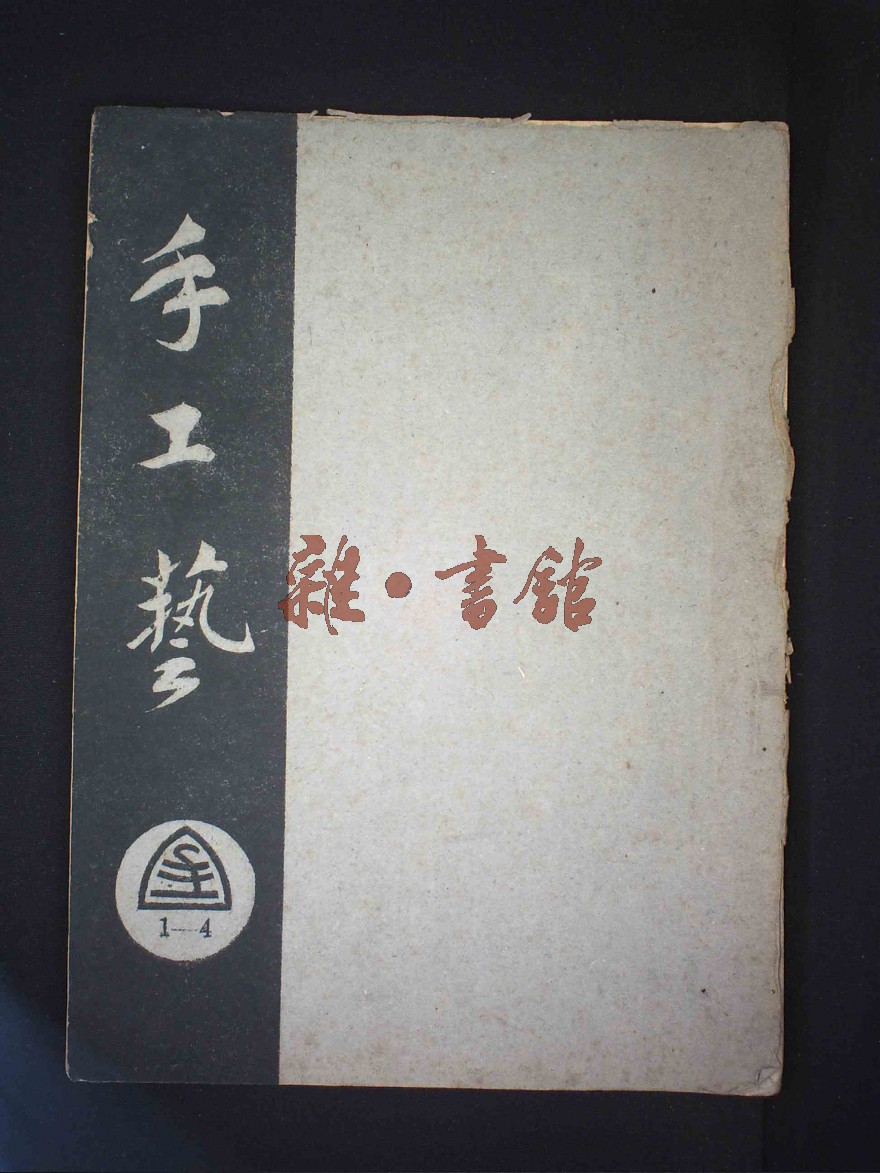 手工藝
1—4
雜·書館